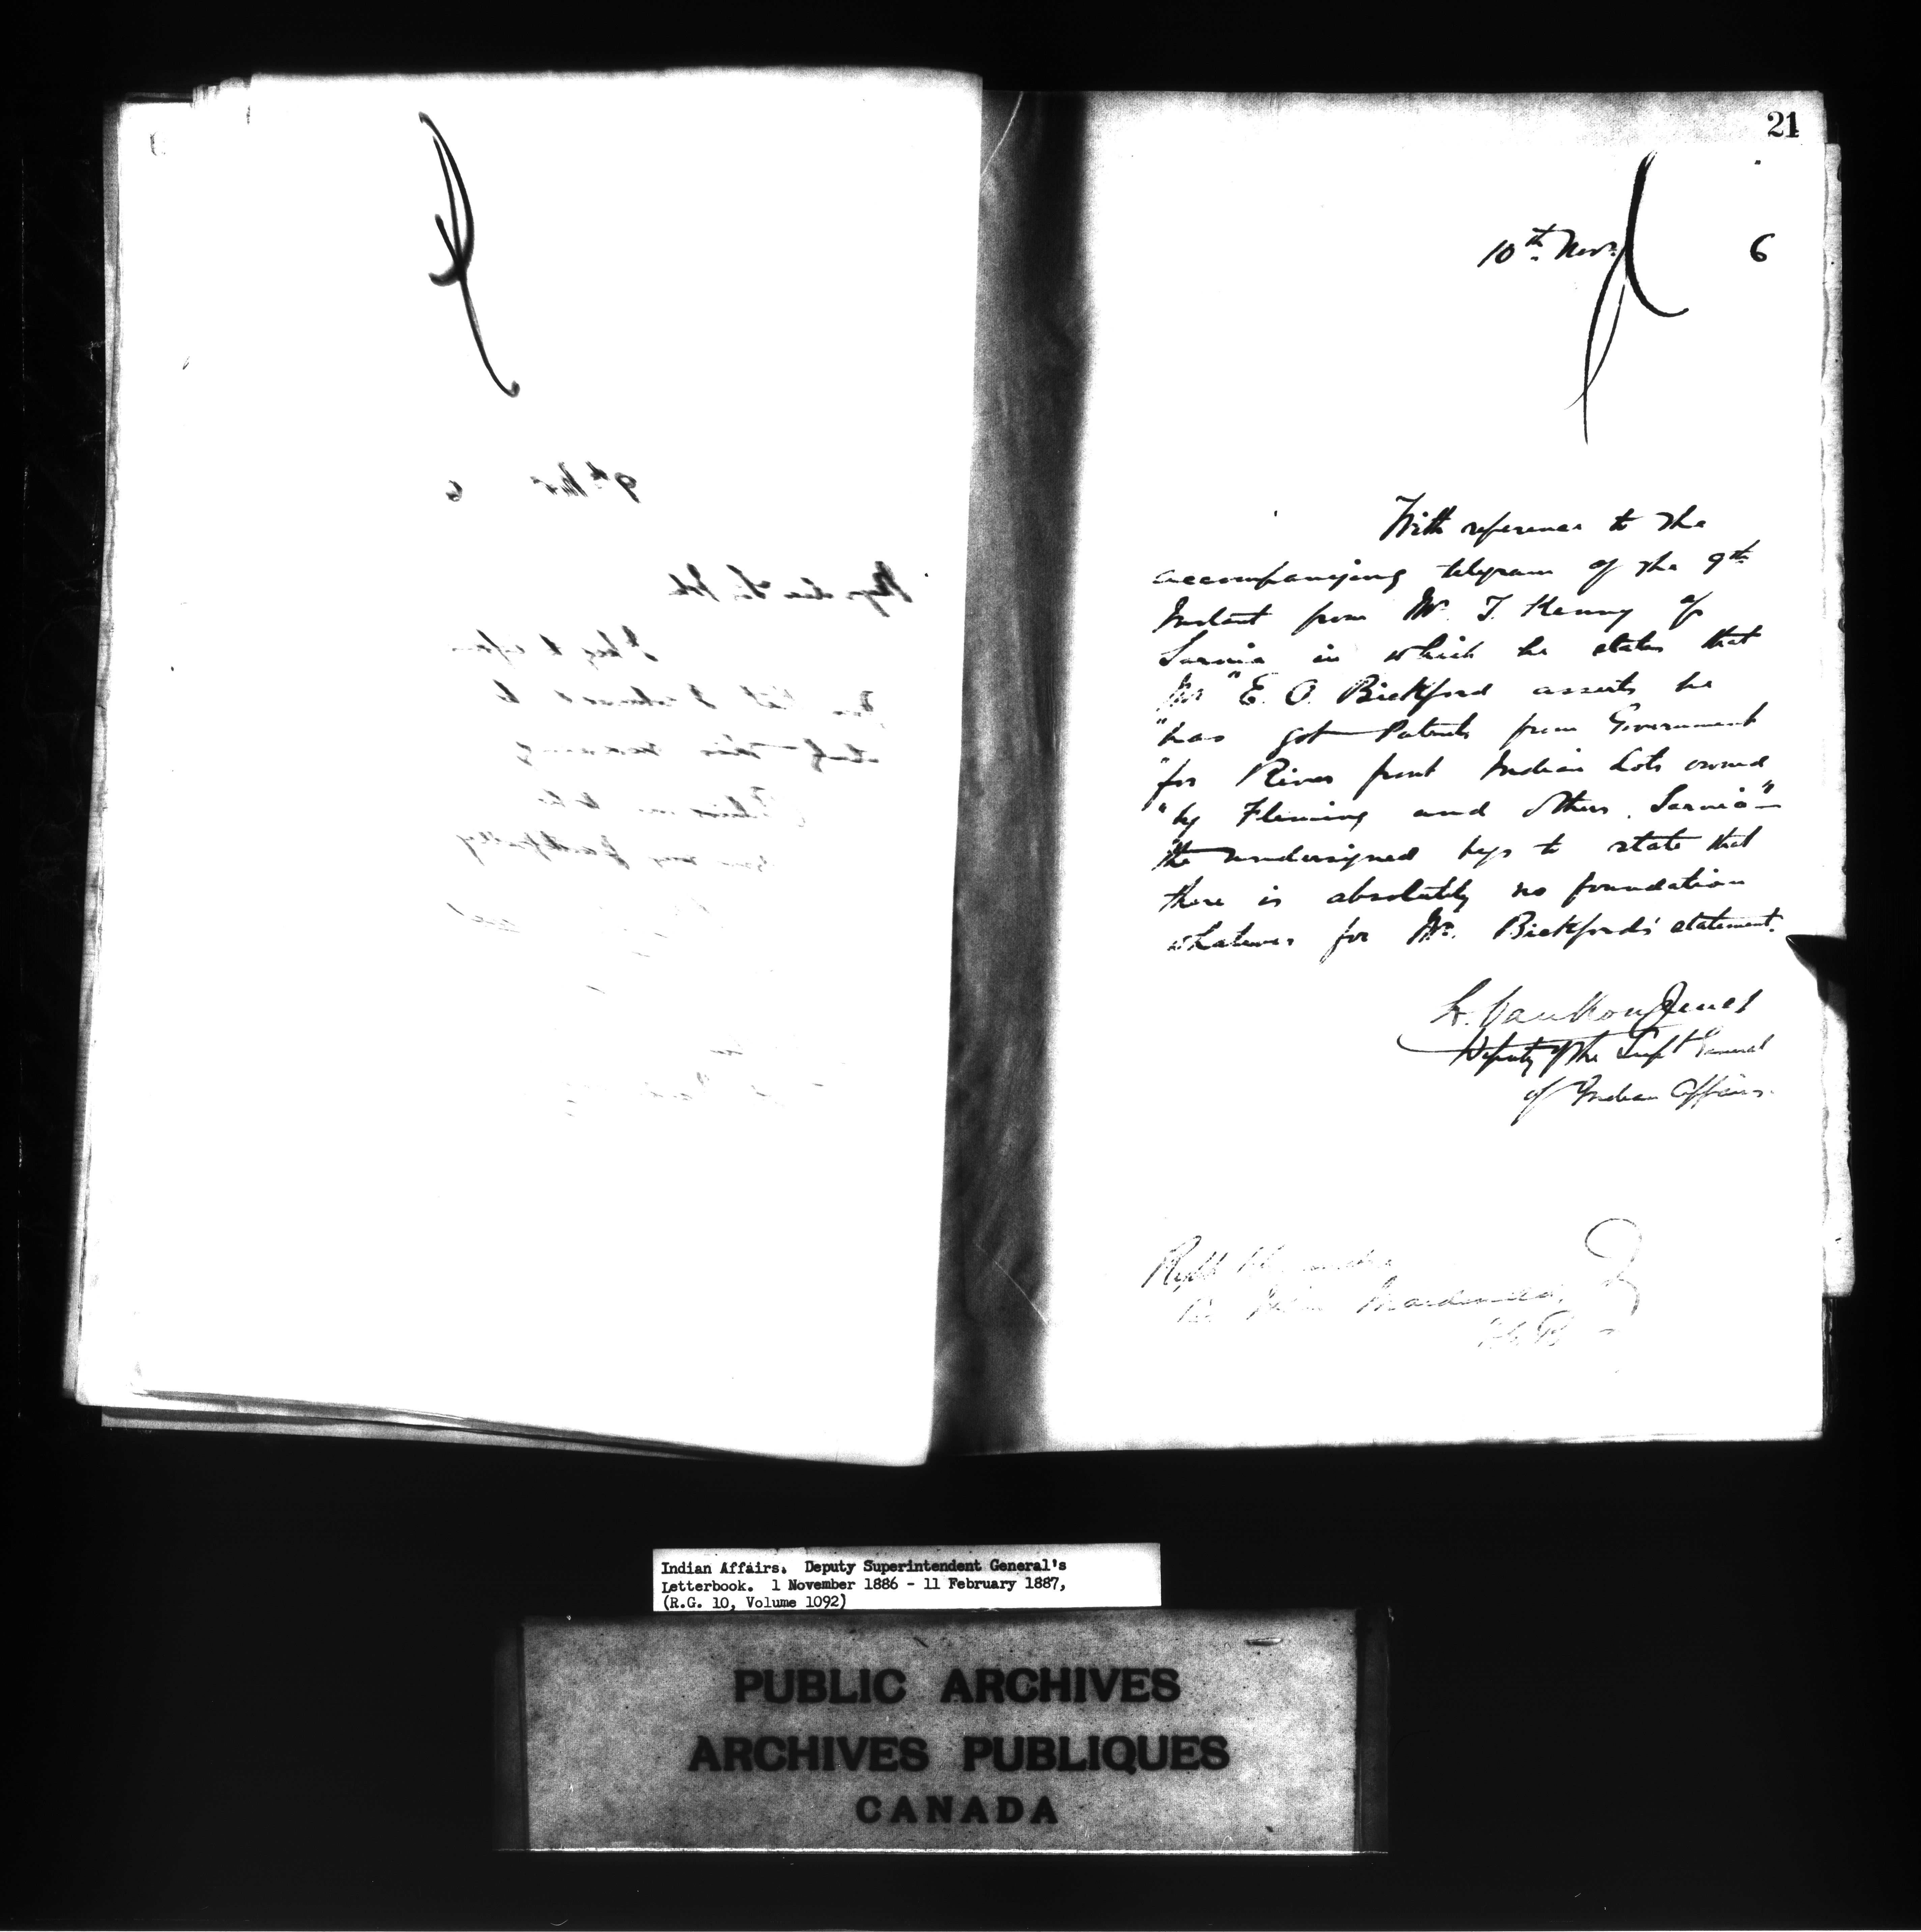 21
10th Nov. 6
With reference to the
accompanying telegram of the 9th
Instant from Mr. T. Kenny of
Sarnia in which he states that
Mr "E. O. Bickford asserts he
"has got Patents from Government
"for River front Indian Lots owned
"by Fleming and others, Sarnia"—
the undersigned begs to state that
there is absolutely no foundation
whatever for Mr. Bickford's statement.
L. Vankoughnet
Deputy of the Supt General
of Indian Affairs.
John Macdonald,
9th Nov 6
My dear Sir John
I beg to inform
you that I returned to
this morning
Believe me to be
yours very faithfully
Indian Affairs. Deputy Superintendent General's
Letterbook. 1 November 1886 - 11 February 1887,
(R.G. 10, Volume 1092)
PUBLIC ARCHIVES
ARCHIVES PUBLIQUES
CANADA